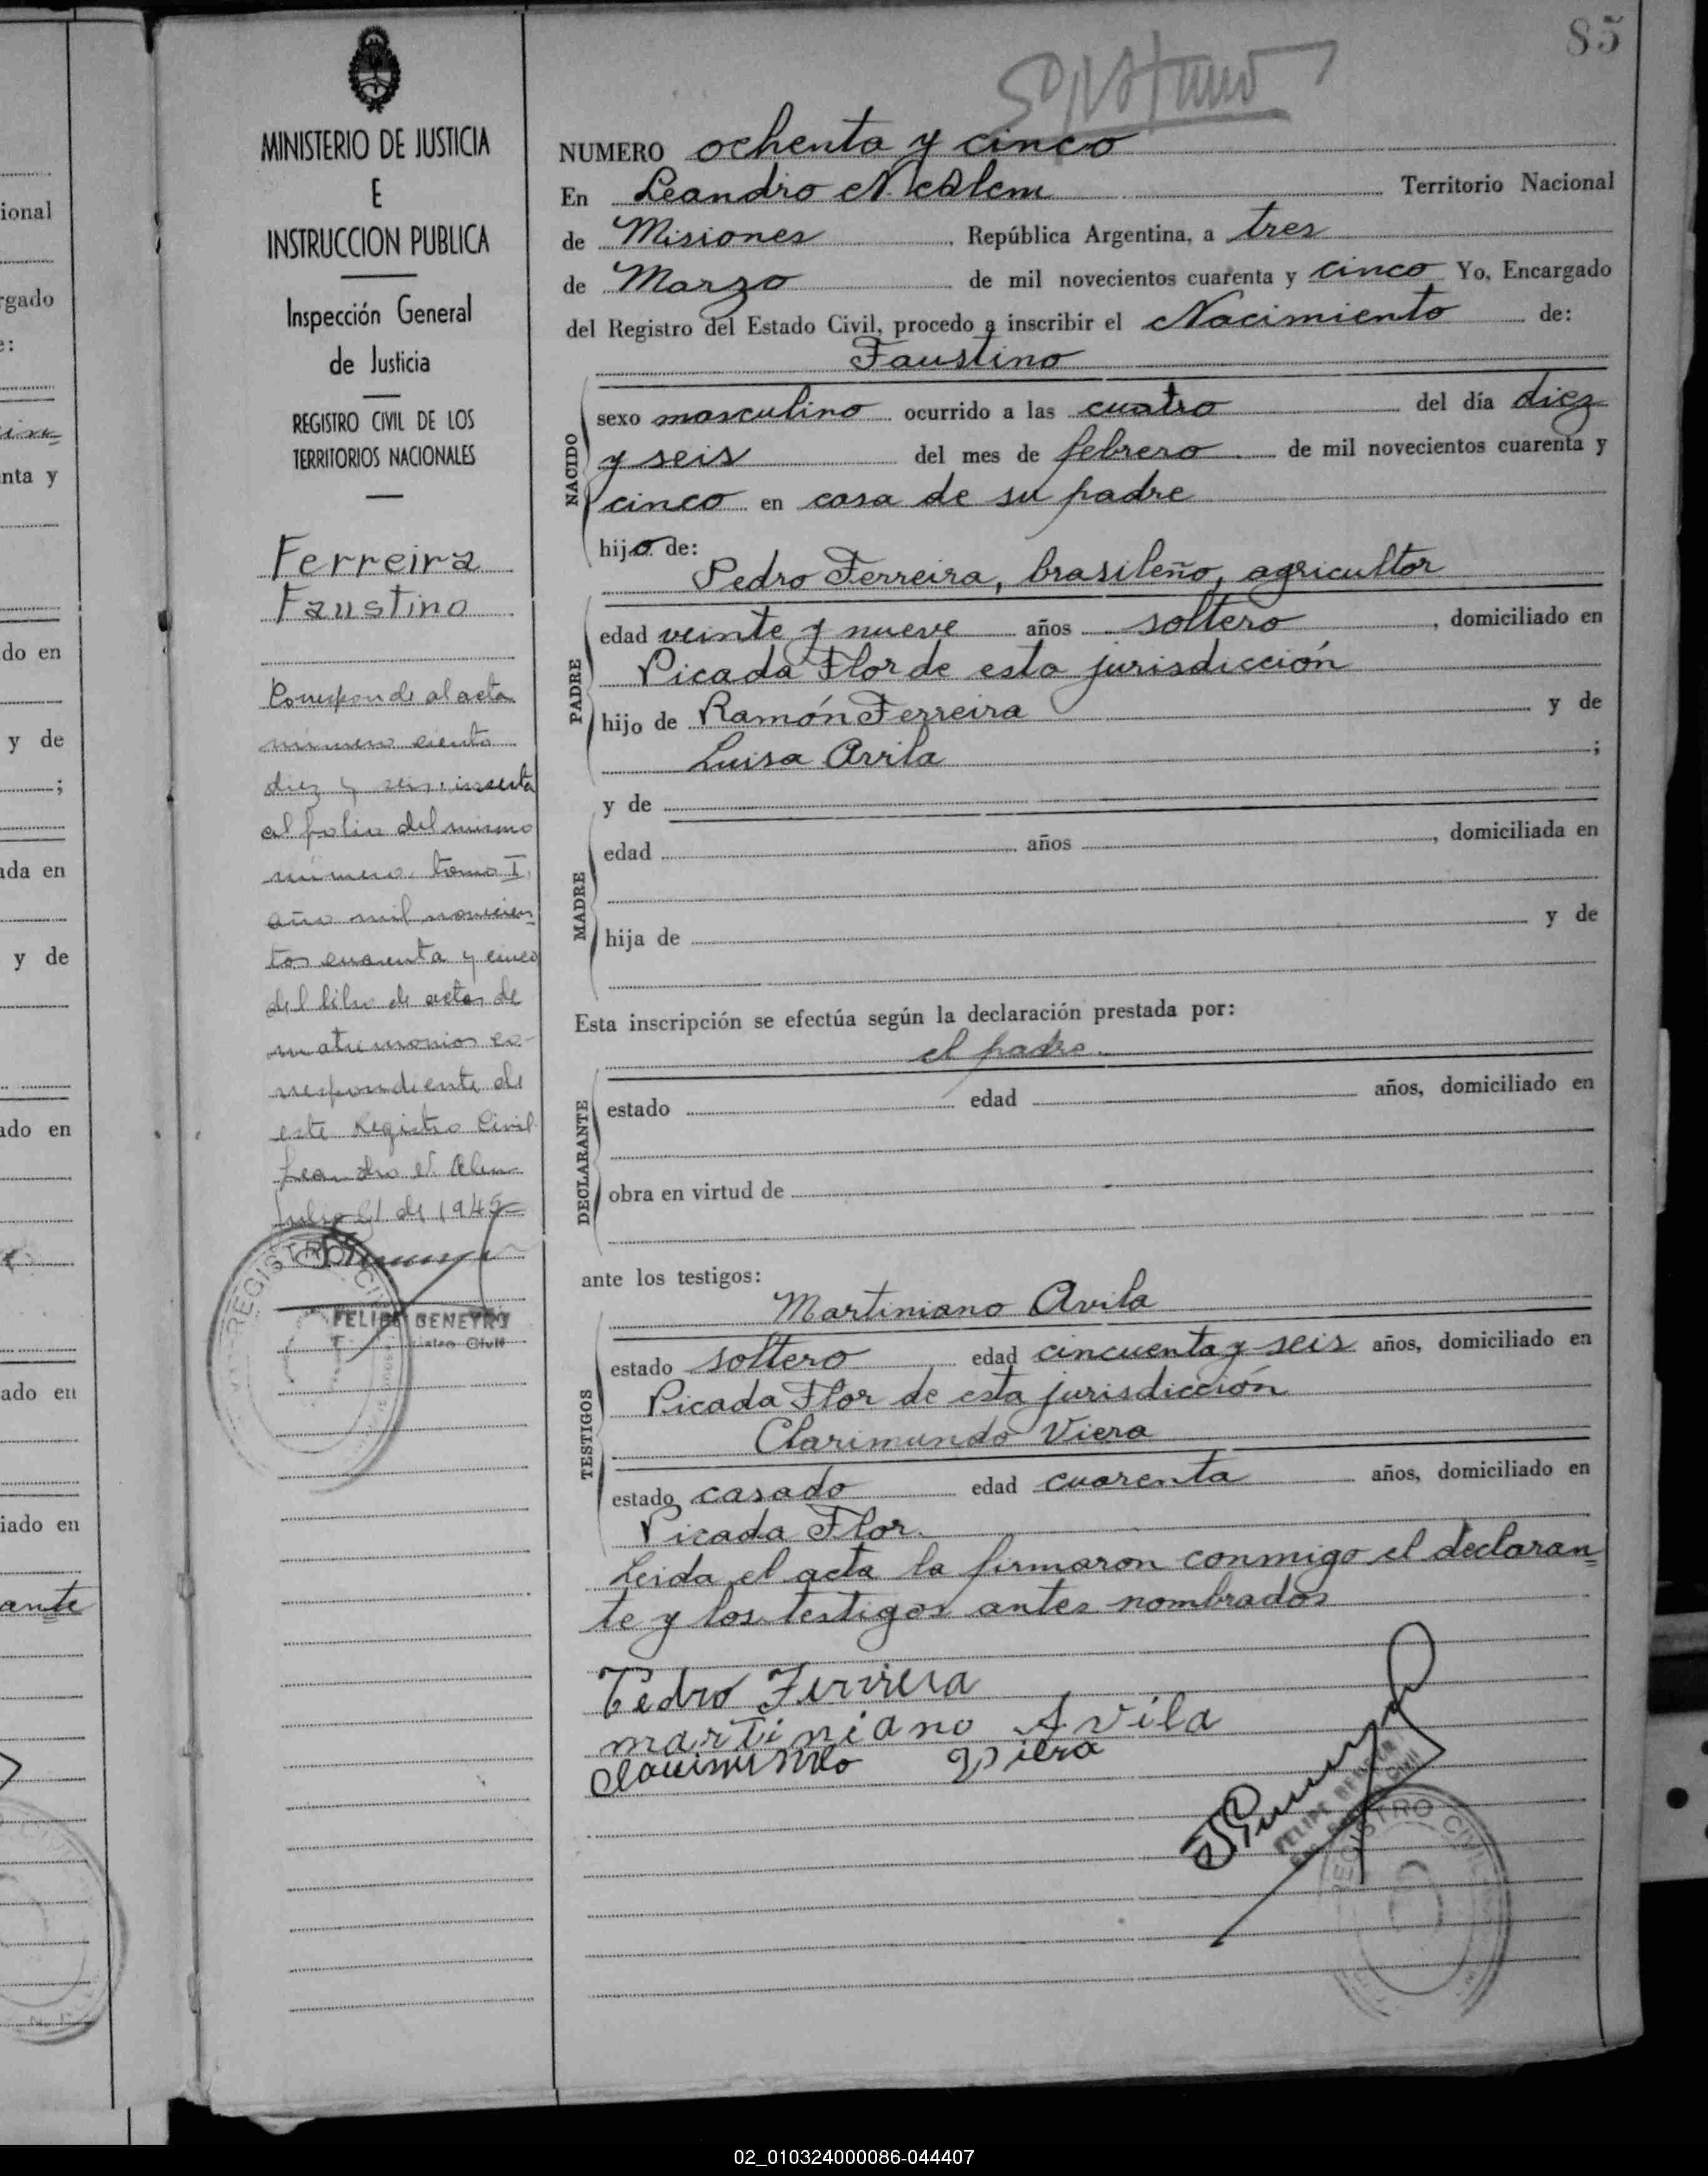 85
NUMERO ochenta y cinco
En Leandro N. Alem Territorio Nacional
de Misiones, República Argentina, a tres
de Marzo de mil novecientos cuarenta y cinco Yo, Encargado
del Registro del Estado Civil, procedo a inscribir el Nacimiento de:
Faustino
NACIDO
sexo masculino ocurrido a las cuatro del día diez
y seis del mes de febrero de mil novecientos cuarenta y
cinco en casa de su padre
hijo de:
Pedro Ferreira, brasileño, agricultor
PADRE
edad veinte y nueve años soltero, domiciliado en
Picada Flor de esta jurisdicción
hijo de Ramón Ferreira y de
Luisa Avila;
y de
MADRE
edad años, domiciliada en
hija de y de
Esta inscripción se efectúa según la declaración prestada por:
el padre.
DECLARANTE
estado edad años, domiciliado en
obra en virtud de
ante los testigos:
Martiniano Avila
TESTIGOS
estado soltero edad cincuenta y seis años, domiciliado en
Picada Flor de esta jurisdicción
Clarimundo Viera
estado casado edad cuarenta años, domiciliado en
Picada Flor.
Leida el acta la firmaron conmigo el declaran=
te y los testigos antes nombrados
Pedro Ferreira
martiniano Avila
Clarimundo Viera
REGISTRO CIVIL
MINISTERIO DE JUSTICIA
E
INSTRUCCION PUBLICA
Inspección General
de Justicia
REGISTRO CIVIL DE LOS
TERRITORIOS NACIONALES
Ferreira
Faustino
Corresponde al acta
número ciento
diez y seis, inserta
al folio del mismo
número, tomo I,
año mil novecien=
tos cuarenta y cinco
del libro de actas de
matrimonios co-
rrespondiente de
este Registro Civil
Leandro N. Alem
Julio 21 de 1945=
REGISTRO CIVIL
FELIPE BENEYTO
ional
rgado
e:
nta y
do en
y de
;
ada en
y de
ado en
ado en
iado en
ante
02_010324000086-044407